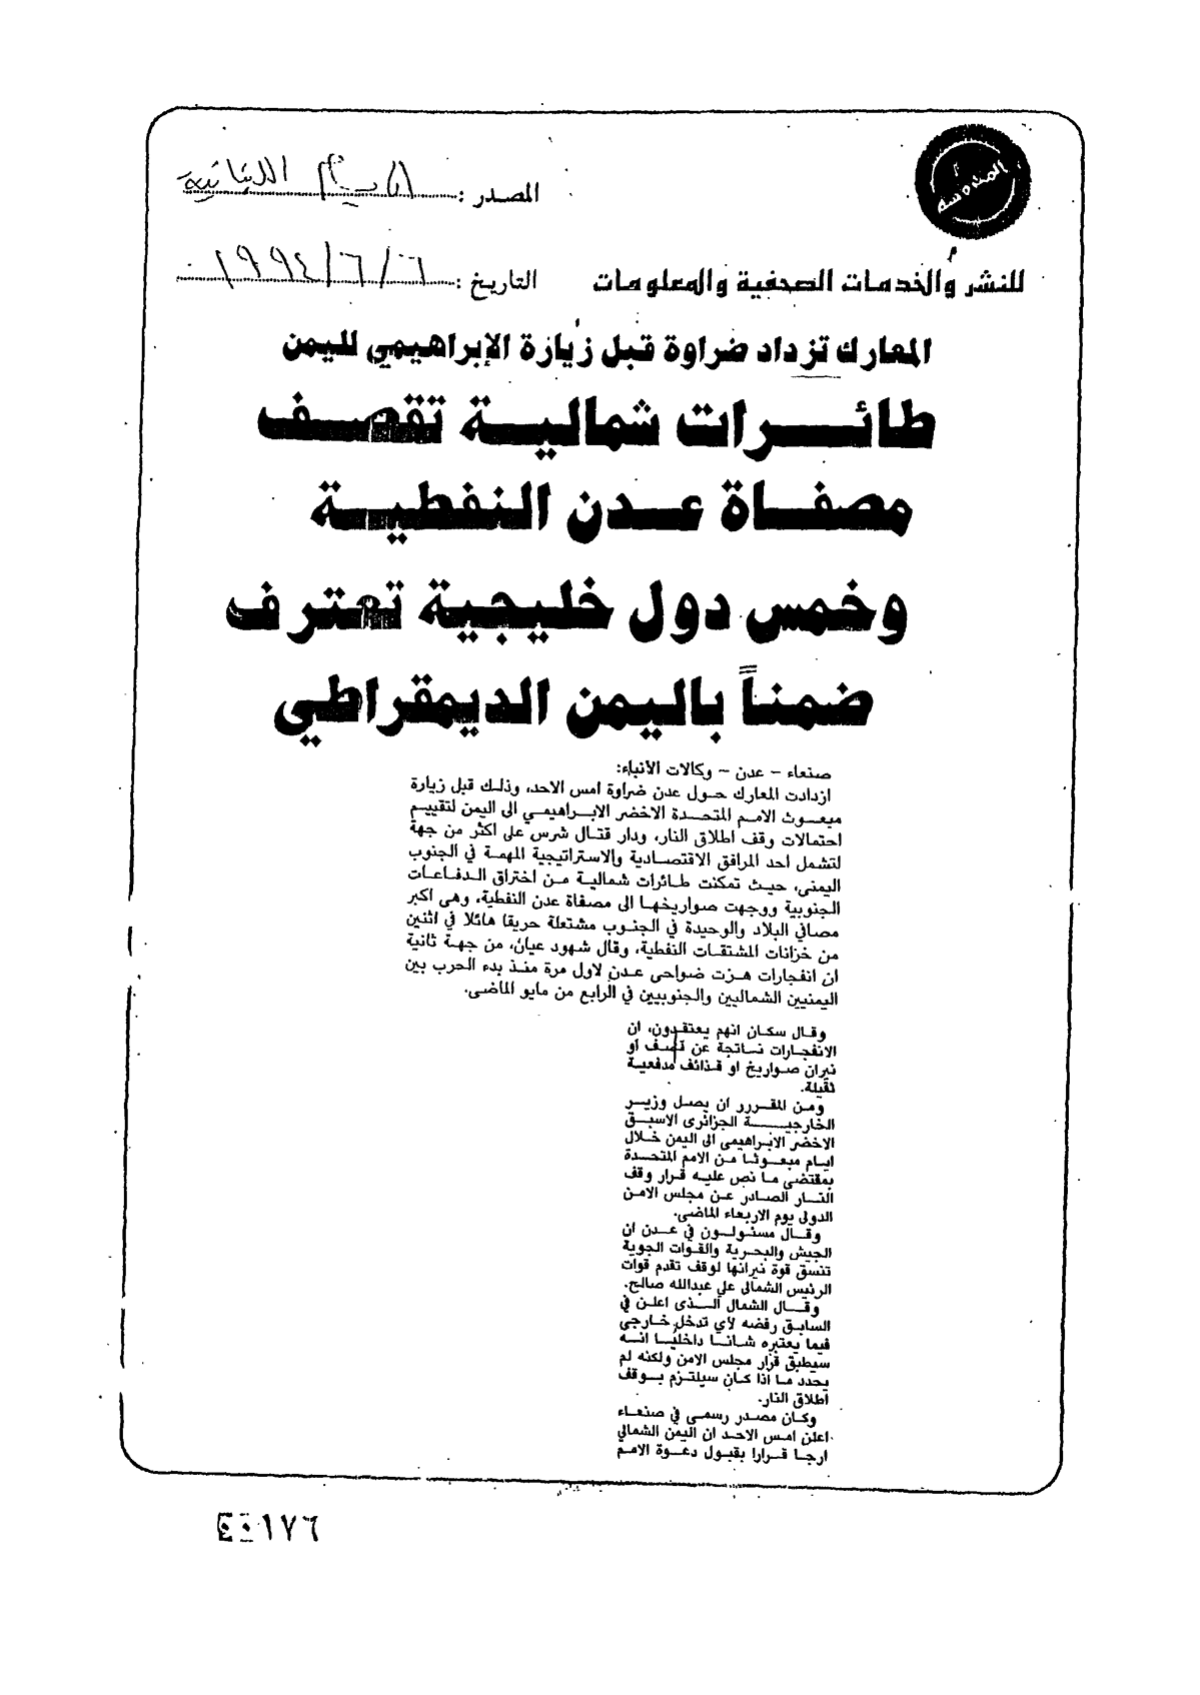 المصدر :
التاريخ : ٦/٦/١٩٩٤
للنشر والخدمات الصحفية والمعلومات
المعارك تزداد ضراوة قبل زيارة الإبراهيمي لليمن
طائرات شمالية تقصف
مصفاة عدن النفطية
وخمس دول خليجية تعترف
ضمناً باليمن الديمقراطي
صنعاء - عدن - وكالات الأنباء:
ازدادت المعارك حول عدن ضراوة امس الاحد، وذلك قبل زيارة
مبعوث الامم المتحدة الاخضر الابراهيمي الى اليمن لتقييم
احتمالات وقف اطلاق النار، ودار قتال شرس على اكثر من جهة
لتشمل احد المرافق الاقتصادية والاستراتيجية المهمة في الجنوب
اليمنى، حيث تمكنت طائرات شمالية من اختراق الدفاعات
الجنوبية ووجهت صواريخها الى مصفاة عدن النفطية، وهى اكبر
مصافي البلاد والوحيدة في الجنوب مشتعلة حريقا هائلا في اثنين
من خزانات المشتقات النفطية، وقال شهود عيان، من جهة ثانية
ان انفجارات هزت ضواحى عدن لاول مرة منذ بدء الحرب بين
اليمنيين الشماليين والجنوبيين في الرابع من مايو الماضى.
وقال سكان انهم يعتقدون، ان
الانفجارات ناتجة عن قصف او
نيران صواريخ او قذائف مدفعية
ثقيلة.
ومن المقرر ان يصل وزير
الخارجية الجزائرى الاسبق
الاخضر الابراهيمى الى اليمن خلال
ايام مبعوثا من الامم المتحدة
بمقتضى ما نص عليه قرار وقف
النار الصادر عن مجلس الامن
الدولى يوم الاربعاء الماضى.
وقال مسئولون في عدن ان
الجيش والبحرية والقوات الجوية
تنسق قوة نيرانها لوقف تقدم قوات
الرئيس الشمالى على عبدالله صالح.
وقال الشمال الذى اعلن في
السابق رفضه لأي تدخل خارجي
فيما يعتبره شانا داخليا انه
سيطبق قرار مجلس الامن ولكنه لم
يحدد ما اذا كان سيلتزم بوقف
اطلاق النار.
وكان مصدر رسمى في صنعاء
اعلن امس الاحد ان اليمن الشمالي
ارجا قرارا بقبول دعوة الامم